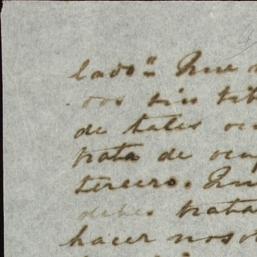 lado". Que
dos sin
de tales
trata de
tercero. Que
debes trata
hacer noso